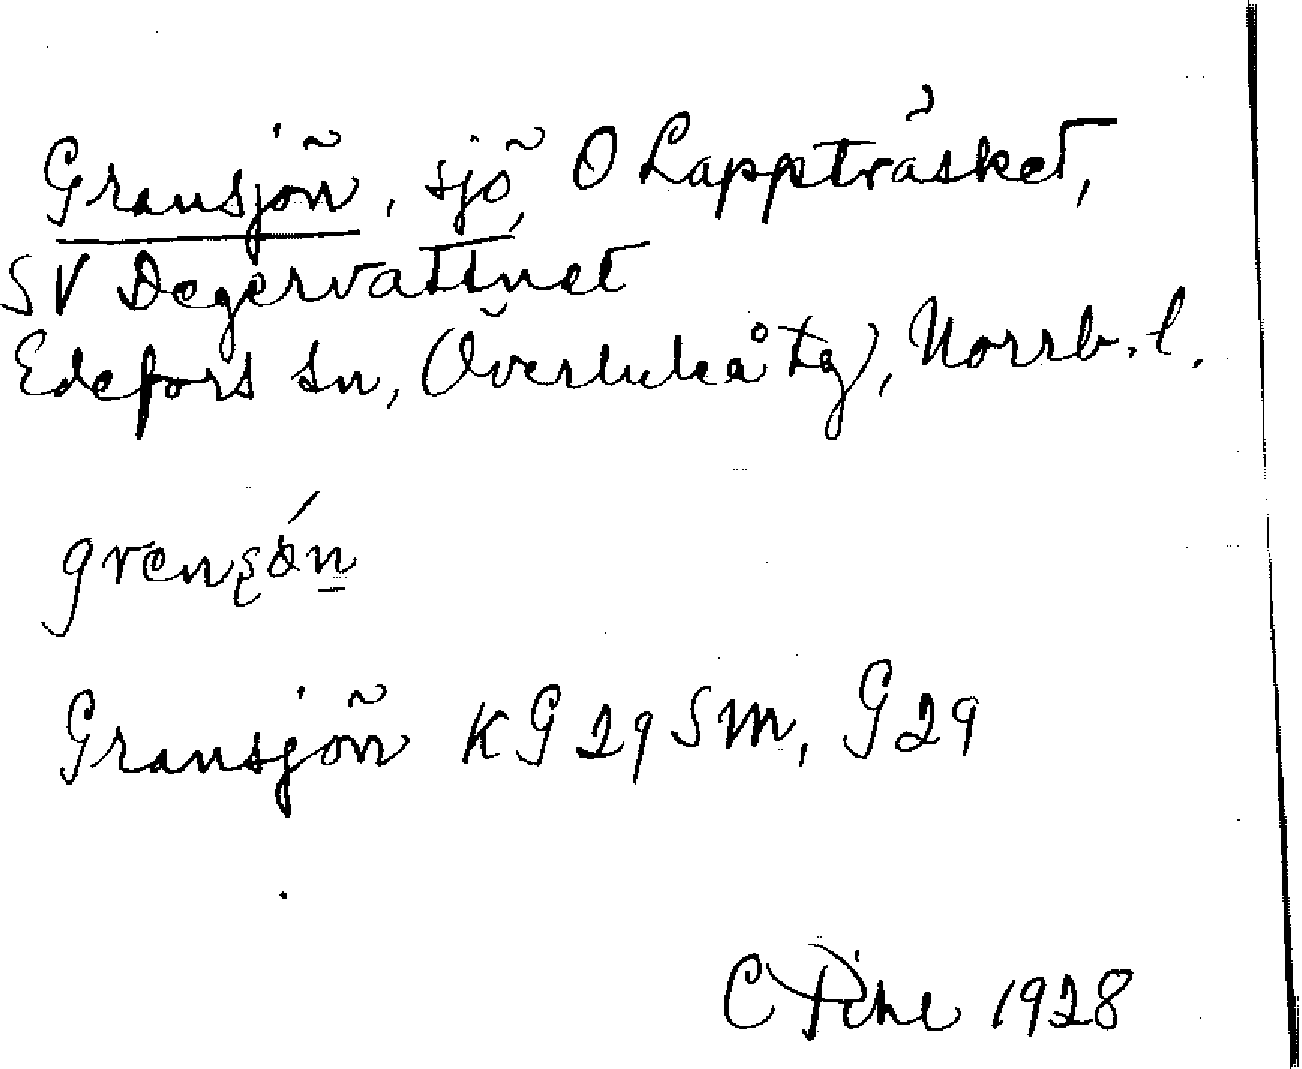 Gransjön, sjö, O Lappträsket,
SV Degervattnet
Edefors sn, (Överluleå tg), Norrb. l.
grensǿn
Gransjön KG 29 SM, G29
C Pihl 1928